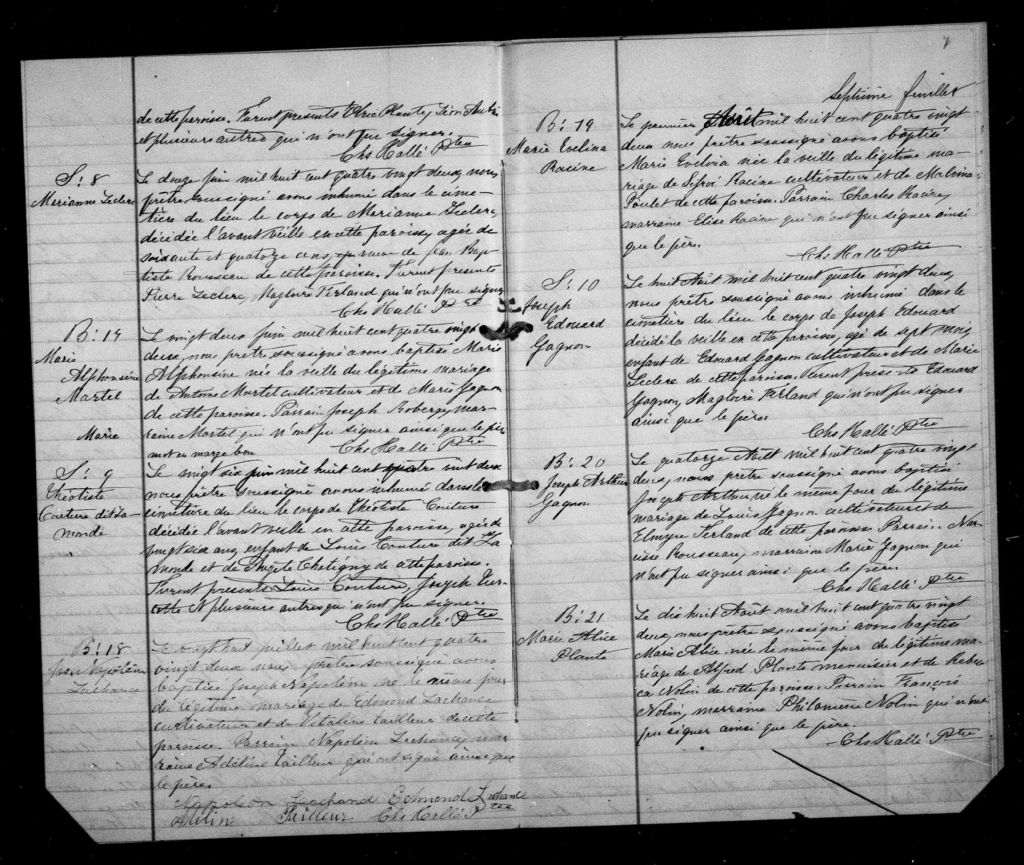 de cette paroisse. Furent presents Elric Plante, Léon Aubé
et plusieurs autres qui n'ont pu signer.
Chs Hallé Ptre
S: 8
Marianne Leclerc
Le douze juin mil huit cent quatre vingt deux, nous
prêtre soussigné avons inhumé dans le cime-
tière du lieu le corps de Marianne Leclerc
décédée l'avant veille en cette paroisse, agée de
soixante et quatorze ans, de Jean Bap-
tiste Rousseau de cette paroisse. Furent presents
Pierre Leclerc, Magloire Ferland qui n'ont pu signer
Chs Hallé Ptre
B: 17
Marie
Alphonsine
Martel
Le vingt deux juin mil huit cent quatre vingt
deux, nous prêtre soussigné avons baptisé Marie
Alphonsine née la veille du légitime mariage
de Antoine Martel cultivateur et de Marie Gagnon
de cette paroisse. Parrain Joseph Roberge, mar-
raine Martel qui n'ont pu signer ainsi que le père
Marie
mot en marge bon
Chs Hallé Ptre
S: 9
Théotiste
Couture dit La-
monde
Le vingt six juin mil huit cent quatre vint deux
nous prêtre soussigné avons inhumé dans le
cimetière du lieu le corps de Théotiste Couture
décédée l'avant veille en cette paroisse, agée de
vingt six ans, enfant de Louis Couture dit La
monde et de Angele Chetigny de cette paroisse.
Furent presents Louis Couture, Joseph Tur-
cotte & plusieurs autres qui n'ont pu signer.
Chs Hallé Ptre
B: 18
Jos. Napoléon
Lachance
Le vingt huit juillet mil huit cent quatre
vingt deux nous prêtre soussigné avons
baptisé Joseph Napoléon né le même jour
du légitime mariage de Edmond Lachance
cultivateur et de Vitaline Tailleur de cette
paroisse. Parrain Napoléon Lachance, mar-
raine Adéline Tailleur qui ont signé ainsi que
le père.
Napoleon Lachance Edmond Lachance
Adélin Tailleur Chs Hallé Ptre
7
Septième feuillet
B: 19
Marie Evelina
Racine
Le premier Août mil huit cent quatre vingt
deux nous prêtre soussigné avons baptisé
Marie Evelina née la veille du légitime ma-
riage de Lefroi Racine cultivateur et de Malvina
Poulet de cette paroisse. Parrain Charles Racine,
marraine Elise Racine qui n'ont pu signer ainsi
que le père.
Chs Hallé Ptre
S: 10
Joseph
Edouard
Gagnon
Le huit Août mil huit cent quatre vingt deux,
nous prêtre soussigné avons inhumé dans le
cimetière du lieu le corps de Joseph Edouard
décédé la veille en cette paroisse, agé de sept mois,
enfant de Edouard Gagnon cultivateur et de Marie
Leclerc de cette paroisse. Furent presents Edouard
Gagnon, Magloire Ferland qui n'ont pu signer
ainsi que le père.
Chs Hallé Ptre
B: 20
Joseph Arthur
Gagnon
Le quatorze Août mil huit cent quatre vingt
deux, nous prêtre soussigné avons baptisé
Joseph Arthur, né le même jour du légitime
mariage de Louis Gagnon cultivateur et de
Elmyre Ferland de cette paroisse Parrain Nar-
cisse Rousseau, marraine Marie Gagnon qui
n'ont pu signer ainsi que le père.
Chs Hallé Ptre
B: 21
Marie Alice
Plante
Le dix huit Août mil huit cent quatre vingt
deux, nous prêtre soussigné avons baptisé
Marie Alice née le même jour du légitime ma-
riage de Alfred Plante menuisier et de Rebec-
ca Nolin de cette paroisse. Parrain François
Nolin, marraine Philomène Nolin qui n'ont
pu signer ainsi que le père.
Chs Hallé Ptre